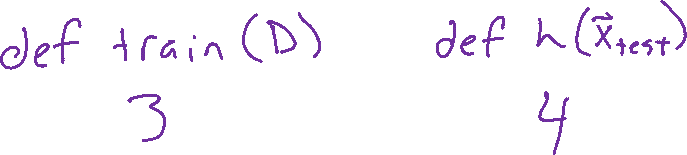 def train(D) def h(x⃗_test)
3 4